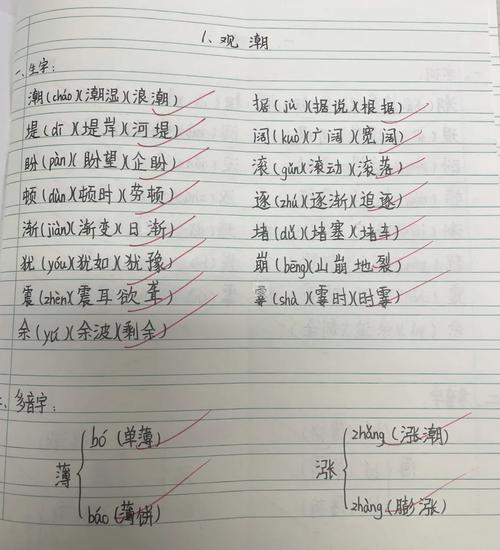 1、观潮
一、生字：
潮(cháo)(潮湿)(浪潮) 据(jù)(据说)(根据)
堤(dī)(堤岸)(河堤) 阔(kuò)(广阔)(宽阔)
盼(pàn)(盼望)(企盼) 滚(gǔn)(滚动)(滚落)
顿(dùn)(顿时)(劳顿) 逐(zhú)(逐渐)(追逐)
渐(jiàn)(渐变)(日渐) 堵(dǔ)(堵塞)(堵车)
犹(yóu)(犹如)(犹豫) 崩(bēng)(山崩地裂)
震(zhèn)(震耳欲聋) 霎(shà)(霎时)(时霎)
余(yú)(余波)(剩余)
二、多音字：
薄 bó(单薄) 涨 zhǎng(涨潮)
báo(薄饼) zhàng(膨涨)